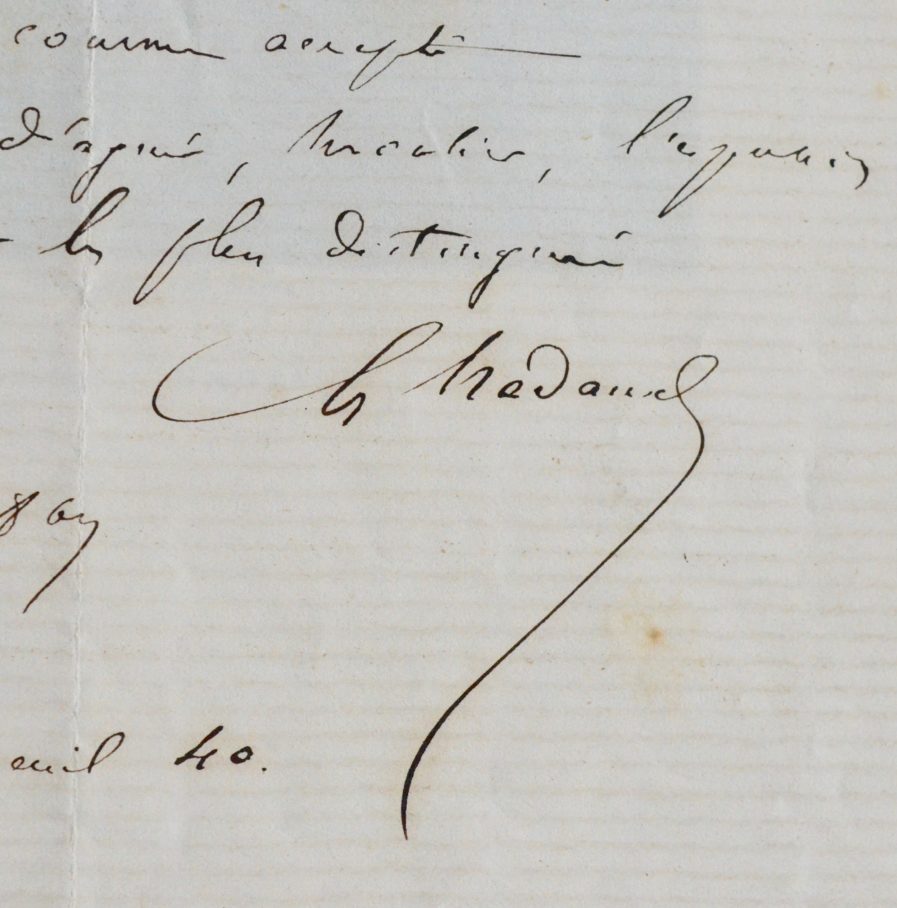 comme accepté
d'agréer, Monsieur, l'expression
les plus distingués
Ch Nadaud
euil 40.